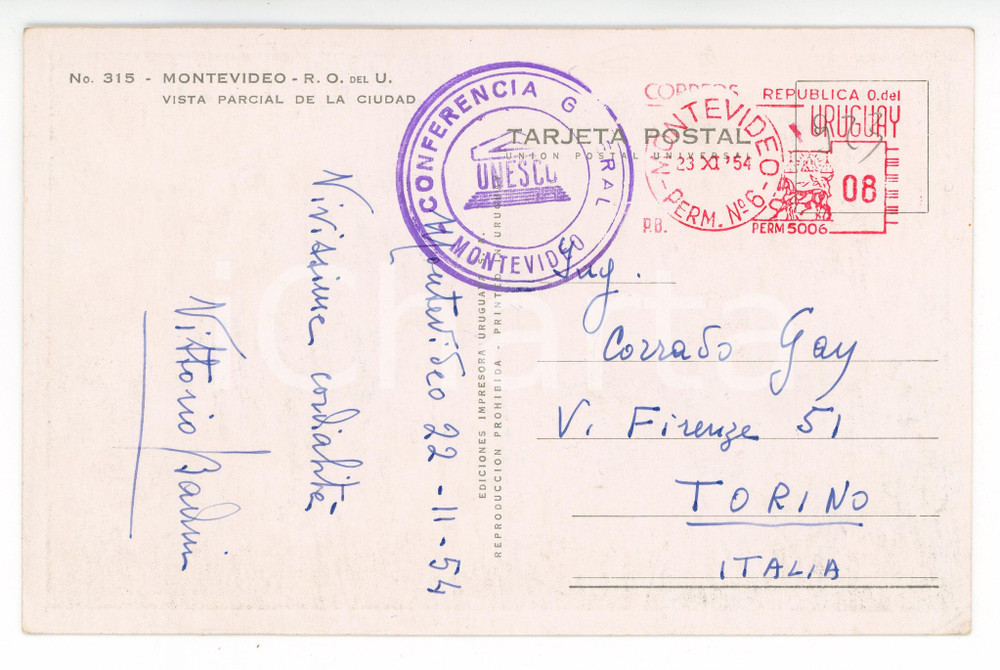 No. 315 - MONTEVIDEO - R. O. DEL U.
VISTA PARCIAL DE LA CIUDAD
CONFERENCIA GENERAL
UNESCO
MONTEVIDEO
TARJETA POSTAL
UNION POSTAL UNIVERSAL
CORREOS
MONTEVIDEO
23 XI '54
PERM. Nº 6
P.B.
REPUBLICA O. del
URUGUAY
08
PERM 5006
Montevideo 22-11-54
Vivissime cordialità
Vittorio
EDICIONES IMPRESORA URUGUAYA
REPRODUCCION PROHIBIDA - PRINTED IN URUGUAY
Ing.
Corrado Gay
V. Firenze 51
TORINO
ITALIA
iCharta